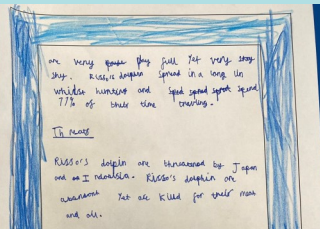 are very play full yet very shy
shy. Risso's dolpins spread in a long lin
whilst hunting and sped spred sprot spend
77% of their time travling.
Threats
Risso's dolpin are threatned by Japan
and Indonesia. Risso's dolphin are
abandant yet are killed for their meat
and oil.